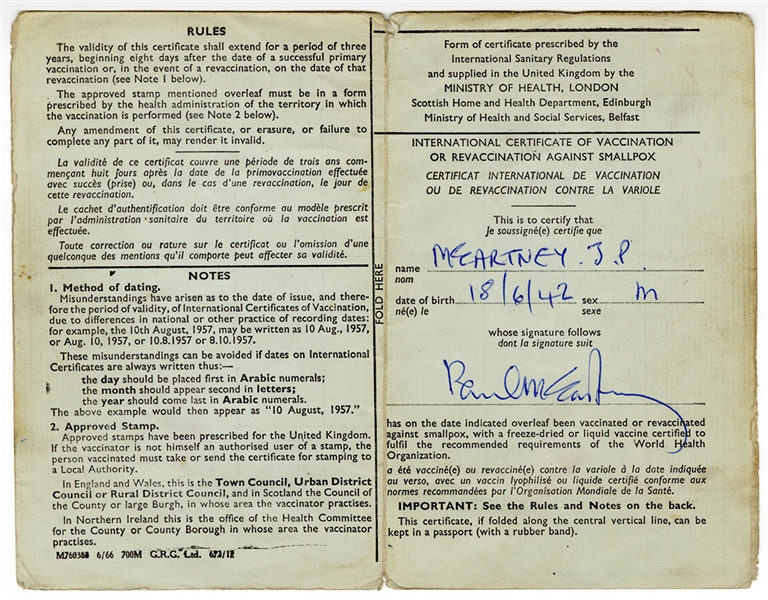 RULES
The validity of this certificate shall extend for a period of three
years, beginning eight days after the date of a successful primary
vaccination or, in the event of a revaccination, on the date of that
revaccination (see Note 1 below).
The approved stamp mentioned overleaf must be in a form
prescribed by the health administration of the territory in which
the vaccination is performed (see Note 2 below).
Any amendment of this certificate, or erasure, or failure to
complete any part of it, may render it invalid.
La validité de ce certificat couvre une période de trois ans com-
mençant huit Jours après la date de la primovaccination effectuée
avec succès (prise) ou, dans le cas d'une revaccination, le jour de
cette revaccination.
Le cachet d'authentification doit être conforme au modèle prescrit
par l'administration sanitaire du territoire où la vaccination est
effectuée.
Toute correction ou rature sur le certificat ou l'omission d'une
quelconque des mentions qu'il comporte peut affecter sa validité.
NOTES
1. Method of dating.
Misunderstandings have arisen as to the date of issue, and there-
fore the period of validity, of International Certificates of Vaccination,
due to differences in national or other practice of recording dates:
for example, the 10th August, 1957, may be written as 10 Aug., 1957,
or Aug. 10, 1957, or 10.8.1957 or 8.10.1957.
These misunderstandings can be avoided if dates on International
Certificates are always written thus:—
the day should be placed first in Arabic numerals;
the month should appear second in letters;
the year should come last in Arabic numerals.
The above example would then appear as "10 August, 1957."
2. Approved Stamp.
Approved stamps have been prescribed for the United Kingdom.
If the vaccinator is not himself an authorised user of a stamp, the
person vaccinated must take or send the certificate for stamping to
a Local Authority.
In England and Wales, this is the Town Council, Urban District
Council or Rural District Council, and in Scotland the Council of
the County or large Burgh, in whose area the vaccinator practises.
In Northern Ireland this is the office of the Health Committee
for the County or County Borough in whose area the vaccinator
practises.
M760388 6/66 700M G.R.G. Ltd. 673/12
FOLD HERE
Form of certificate prescribed by the
International Sanitary Regulations
and supplied in the United Kingdom by the
MINISTRY OF HEALTH, LONDON
Scottish Home and Health Department, Edinburgh
Ministry of Health and Social Services, Belfast
INTERNATIONAL CERTIFICATE OF VACCINATION
OR REVACCINATION AGAINST SMALLPOX
CERTIFICAT INTERNATIONAL DE VACCINATION
OU DE REVACCINATION CONTRE LA VARIOLE
This is to certify that
Je soussigné(e) certifie que
name McCARTNEY. J.P.
nom
date of birth 18/6/42 sex M
né(e) le sexe
whose signature follows
dont la signature suit
Paul McCartney
has on the date indicated overleaf been vaccinated or revaccinated
against smallpox, with a freeze-dried or liquid vaccine certified to
fulfil the recommended requirements of the World Health
Organization.
a été vacciné(e) ou revacciné(e) contre la variole à la date indiquée
au verso, avec un vaccin lyophilisé ou liquide certifié conforme aux
normes recommandées par l'Organisation Mondiale de la Santé.
IMPORTANT: See the Rules and Notes on the back.
This certificate, if folded along the central vertical line, can be
kept in a passport (with a rubber band).